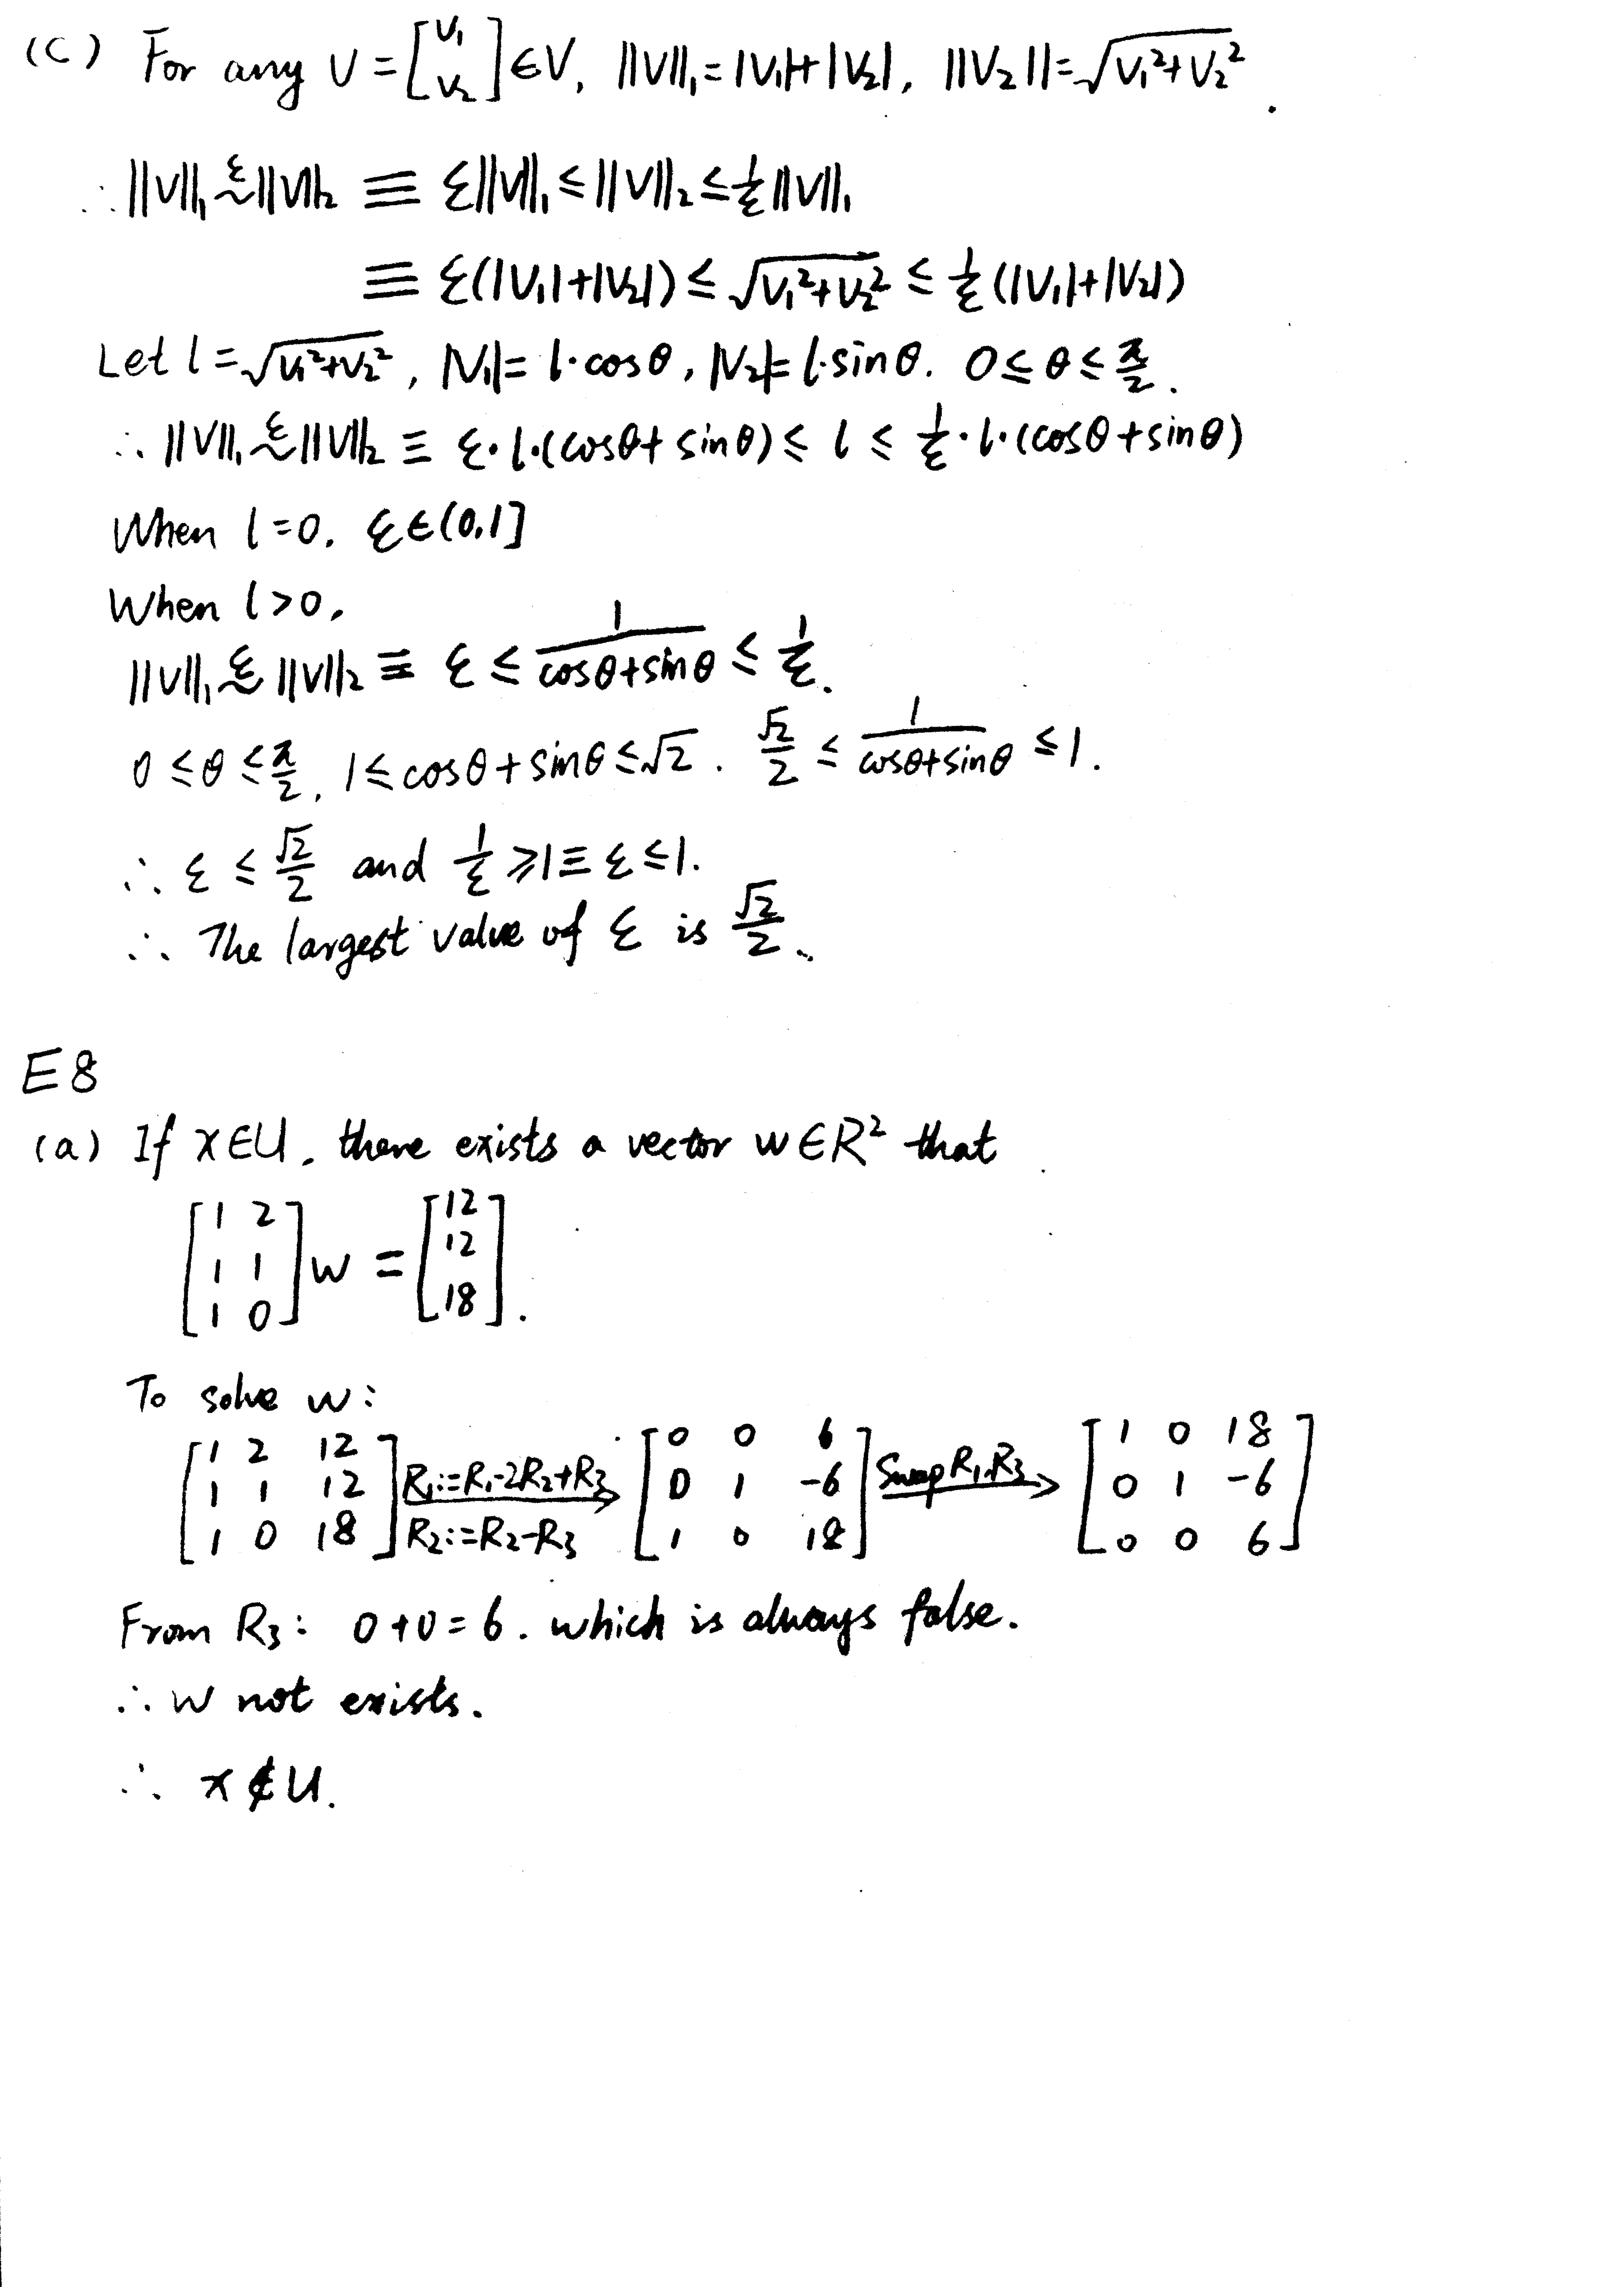 (c) For any V = [V₁ V₂] ∈V, ||V||₁ = |V₁|+|V₂|, ||V₂|| = √(V₁²+V₂²).
∴ ||V||₁ ε~ ||V||₂ ≡ ε||V||₁ ≤ ||V||₂ ≤ 1/ε ||V||₁
≡ ε(|V₁|+|V₂|) ≤ √(V₁²+V₂²) ≤ 1/ε (|V₁|+|V₂|)
Let l = √(V₁²+V₂²), |V₁| = l·cosθ, |V₂| = l·sinθ. 0 ≤ θ ≤ π/2.
∴ ||V||₁ ε~ ||V||₂ ≡ ε·l·(cosθ + sinθ) ≤ l ≤ 1/ε·l·(cosθ + sinθ)
When l=0, ε∈(0,1]
When l>0,
||V||₁ ε~ ||V||₂ ≡ ε ≤ 1/(cosθ+sinθ) ≤ 1/ε.
0 ≤ θ ≤ π/2, 1 ≤ cosθ + sinθ ≤ √2. √2/2 ≤ 1/(cosθ+sinθ) ≤ 1.
∴ ε ≤ √2/2 and 1/ε ⩾ 1 ≡ ε ≤ 1.
∴ The largest value of ε is √2/2.
E8
(a) If x∈U, there exists a vector w∈R² that
[1 2
1 1
1 0] w = [12
12
18].
To solve w:
[1 2 12
1 1 12
1 0 18] R₁:=R₁-2R₂+R₃ R₂:=R₂-R₃ → [0 0 6
0 1 -6
1 0 18] Swap R₁,R₃ → [1 0 18
0 1 -6
0 0 6]
From R₃: 0+0=6. which is always false.
∴ w not exists.
∴ x∉U.